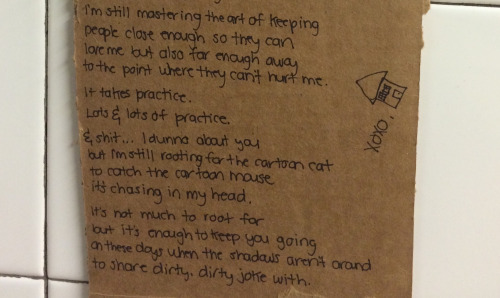 I'm still mastering the art of keeping
people close enough so they can
love me but also far enough away
to the point where they can't hurt me.
It takes practice.
Lots & lots of practice.
& shit... I dunno about you
but I'm still rooting for the cartoon cat
to catch the cartoon mouse
it's chasing in my head.
It's not much to root for
but it's enough to keep you going
on these days when the shadows aren't around
to share dirty, dirty jokes with.
XOXO,